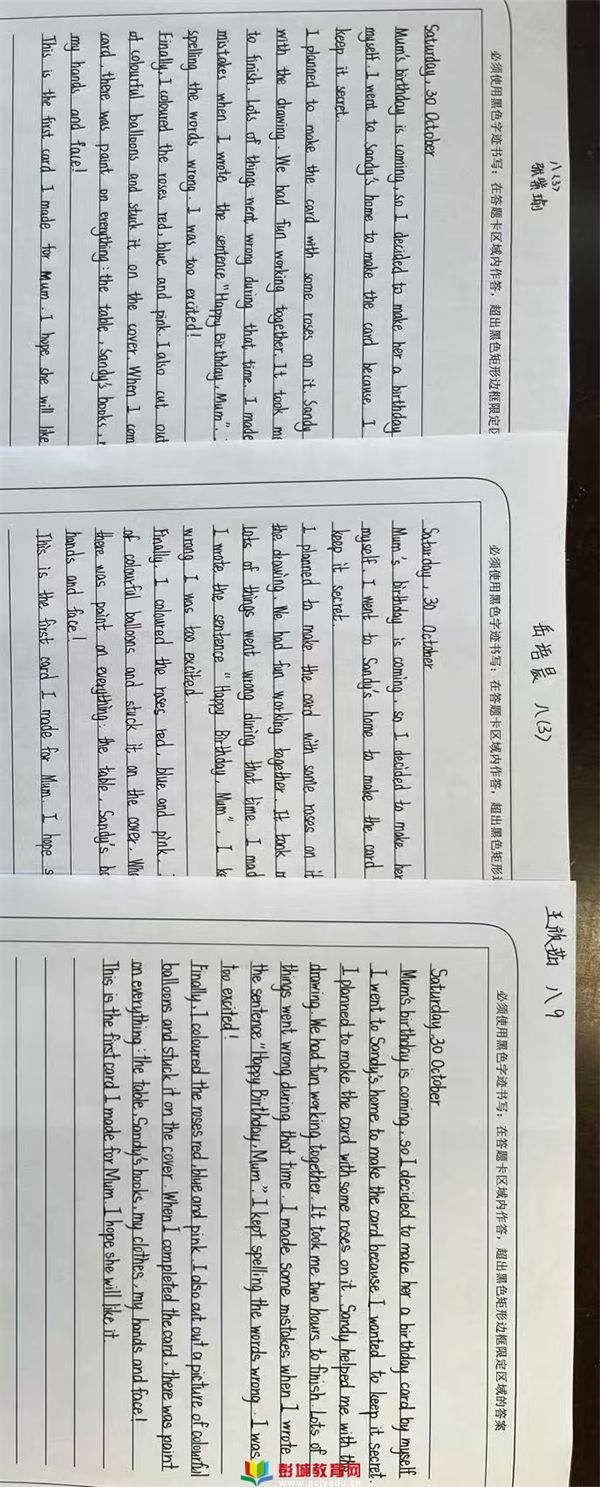 八(3)
张紫瑜
必须使用黑色字迹书写：在答题卡区域内作答，超出黑色矩形边框限定区
Saturday, 30 October
Mum's birthday is coming, so I decided to make her a birthday
myself. I went to Sandy's home to make the card because I
keep it secret.
I planned to make the card with some roses on it. Sandy
with the drawing. We had fun working together. It took m
to finish. Lots of things went wrong during that time. I made
mistakes when I wrote the sentence "Happy Birthday, Mum".
spelling the words wrong. I was too excited!
Finally, I coloured the roses red, blue and pink. I also cut out
of colourful balloons and stuck it on the cover. When I com
card, there was paint on everything: the table, Sandy's books,
my hands and face!
This is the first card I made for Mum. I hope she will like
岳 晨 八(3)
必须使用黑色字迹书写：在答题卡区域内作答，超出黑色矩形
Saturday, 30 October
Mum's birthday is coming, so I decided to make her
myself. I went to Sandy's home to make the card
keep it secret.
I planned to make the card with some roses on it
the drawing. We had fun working together. It took
lots of things went wrong during that time. I mad
I wrote the sentence "Happy Birthday, Mum", I ke
wrong I was too excited.
Finally, I coloured the roses red, blue and pink.
of colourful balloons and stuck it on the cover. Whe
there was paint on everything: the table, Sandy's bo
hands and face!
This is the first card I made for Mum. I hope s
王 八9
必须使用黑色字迹书写：在答题卡区域内作答，超出黑色矩形边框限定区域的答案
Saturday, 30 October
Mum's birthday is coming, so I decided to make her a birthday card by myself
I went to Sandy's home to make the card because I wanted to keep it secret.
I planned to make the card with some roses on it. Sandy helped me with the
drawing. We had fun working together. It took me two hours to finish. Lots of
things went wrong during that time. I made some mistakes when I wrote
the sentence "Happy Birthday, Mum." I kept spelling the words wrong. I was
too excited!
Finally, I coloured the roses red, blue and pink. I also cut out a picture of colourful
balloons and stuck it on the cover. When I completed the card, there was paint
on everything: the table, Sandy's books, my clothes, my hands and face!
This is the first card I made for Mum. I hope she will like it
彭城教育网
www.pcjyedu.cn